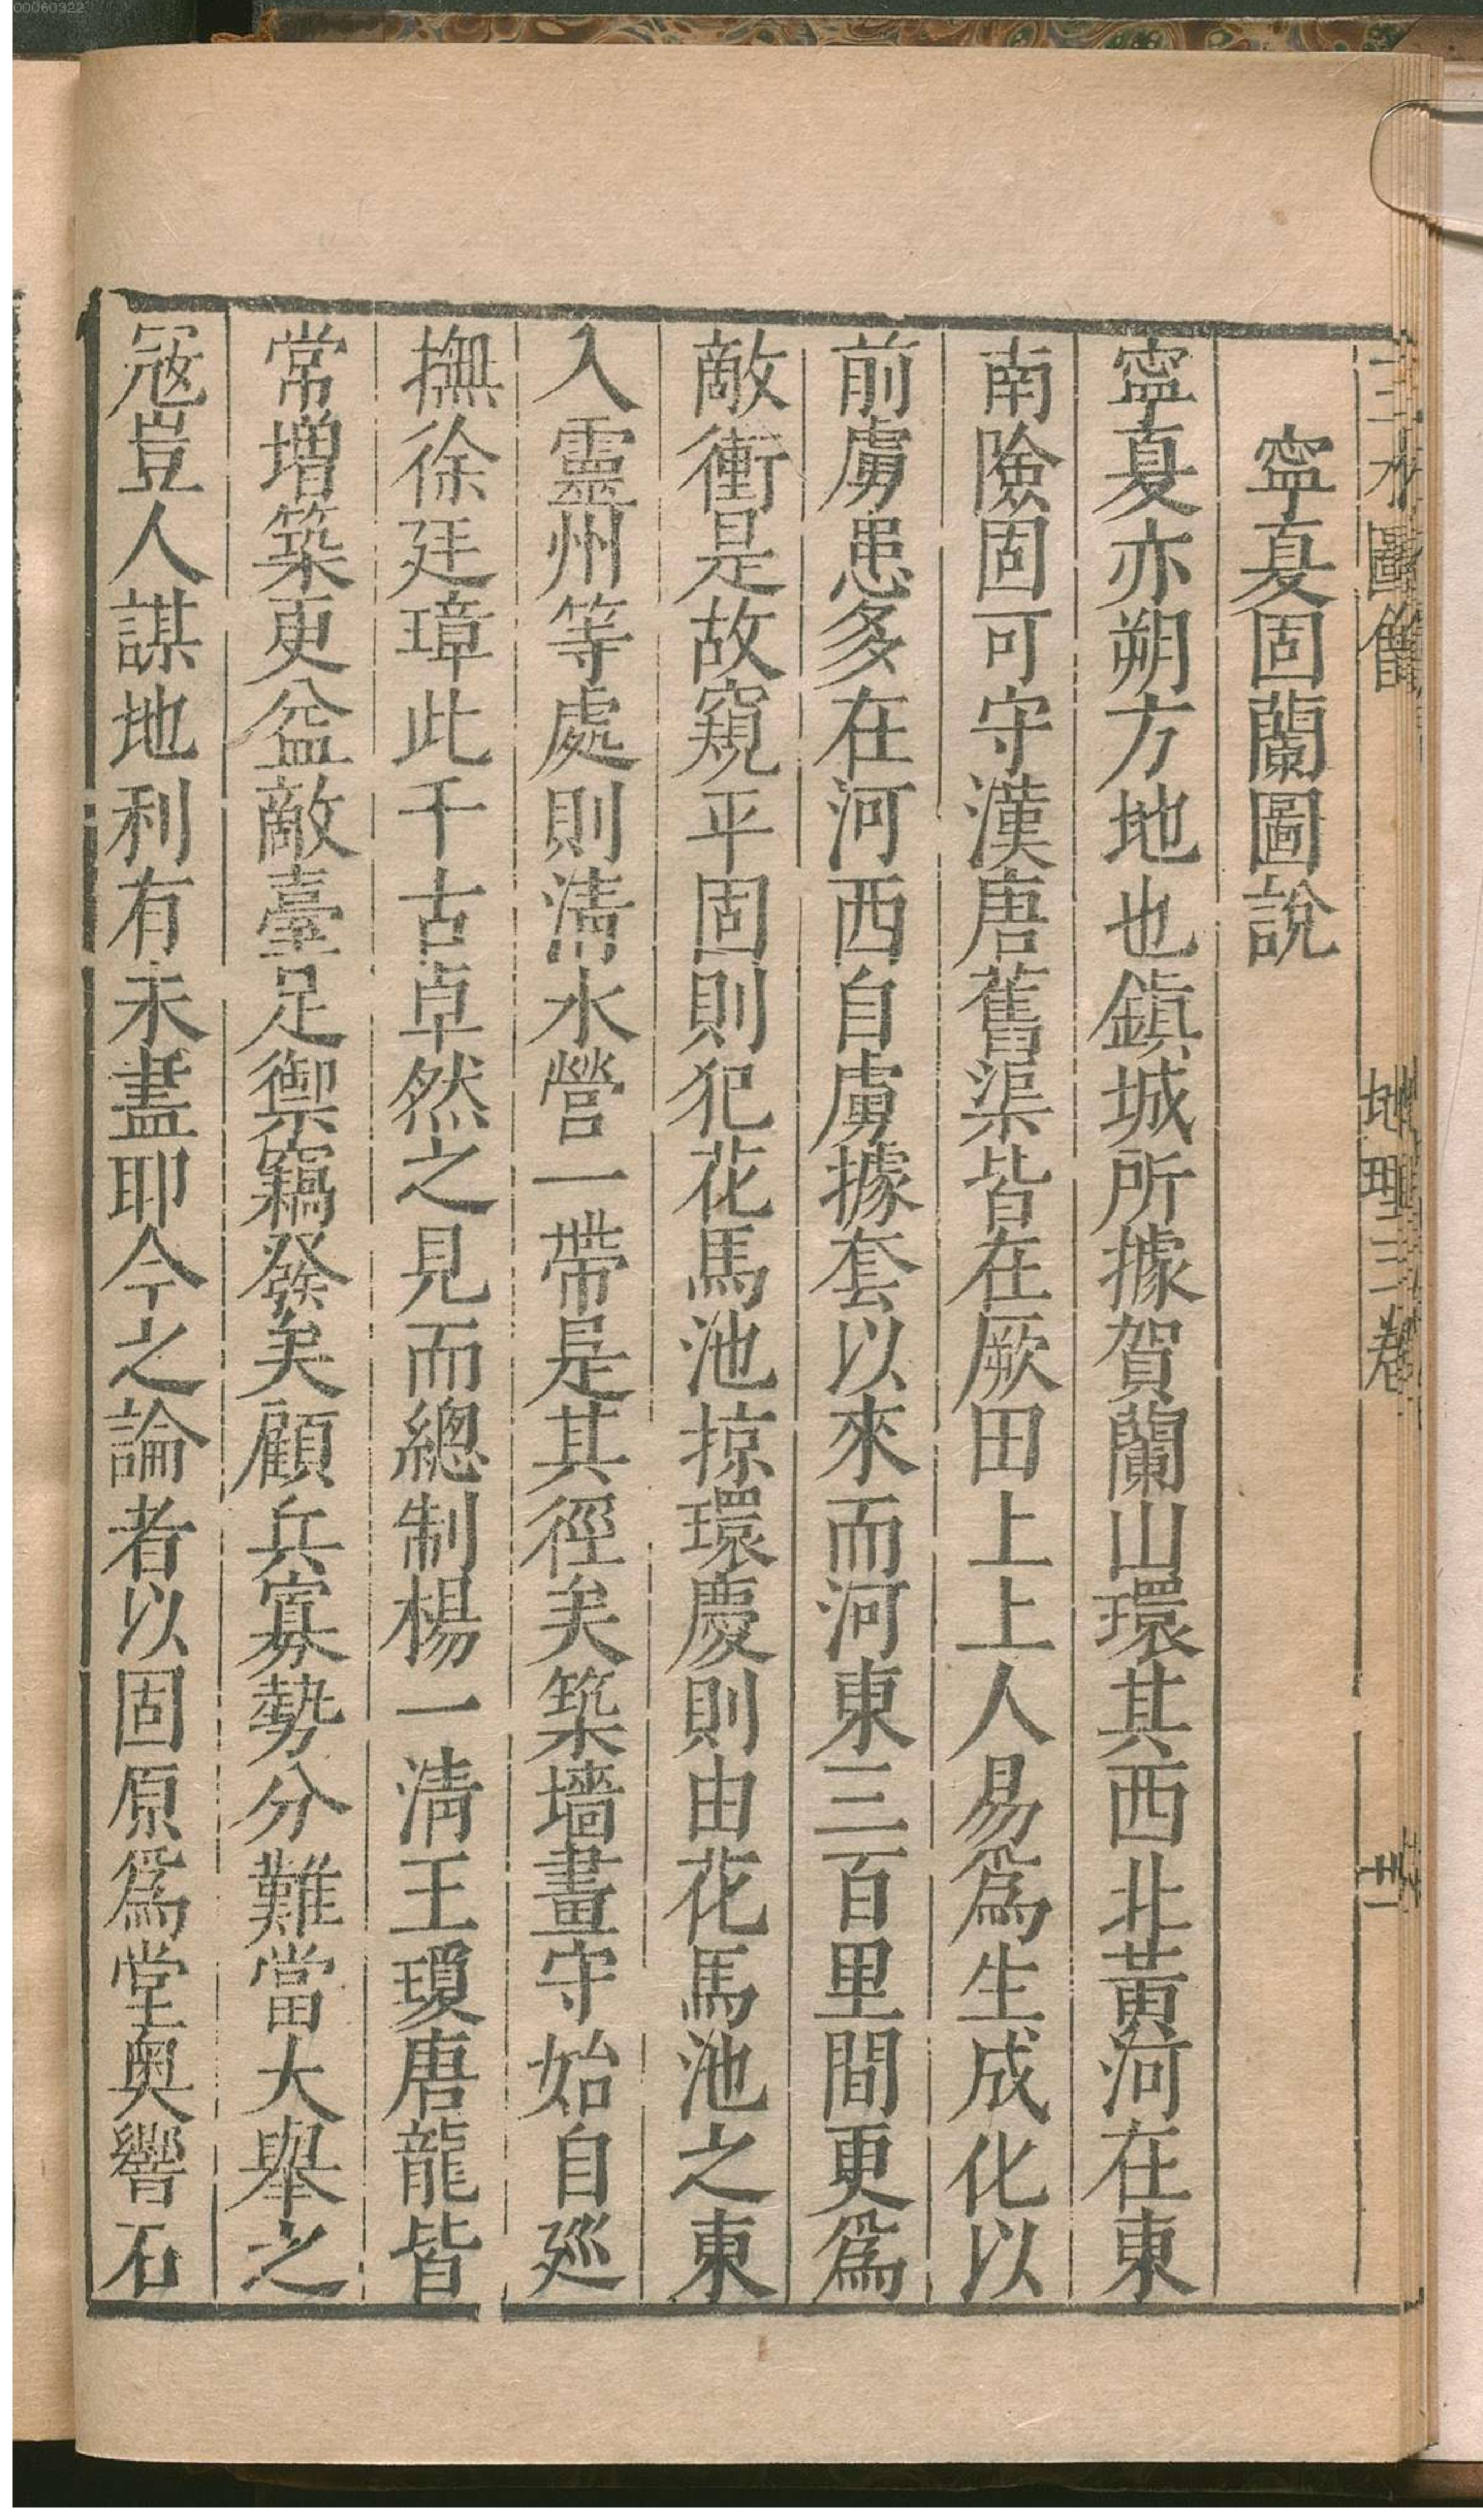 寧夏固蘭圖說
寧夏亦朔方地也鎮城所據賀蘭山環其西北黃河在東
南險固可守漢唐舊渠皆在厥田上上人易爲生成化以
前虜患多在河西自虜據套以來而河東三百里間更爲
敵衝是故窺平固則犯花馬池掠環慶則由花馬池之東
入靈州等處則清水營一帶是其徑矣築墻畫守始自廵
撫徐廷璋此千古卓然之見而總制楊一清王瓊唐龍皆
常增築更益敵臺足禦竊發矣顧兵寡勢分難當大舉之
寇豈人謀地利有未盡耶今之論者以固原爲堂奧響石
地理三卷
00060322